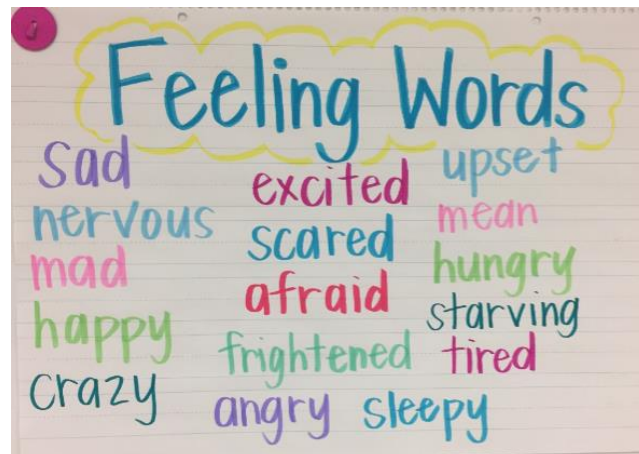 Feeling Words
sad
nervous
mad
happy
crazy
excited
scared
afraid
frightened
angry
sleepy
upset
mean
hungry
starving
tired